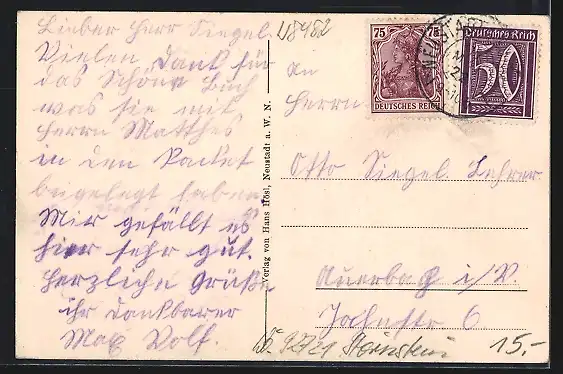 Lieber Herr Siegel
Vielen Dank für
das Schöne Buch
was sie mit
Herrn Matthes
in den Packet
beigelegt haben
Mir gefällt es
hier sehr gut.
Herzliche Grüße
ihr dankbarer
Max Wolf.
Verlag von Hans Hösl, Neustadt a. W. N.
V8452
An
Herrn
Otto Siegel Lehrer
Auerbach i/V.
6
75 75
DEUTSCHES REICH
NEUSTADT
Deutsches Reich
50
92721
15.-